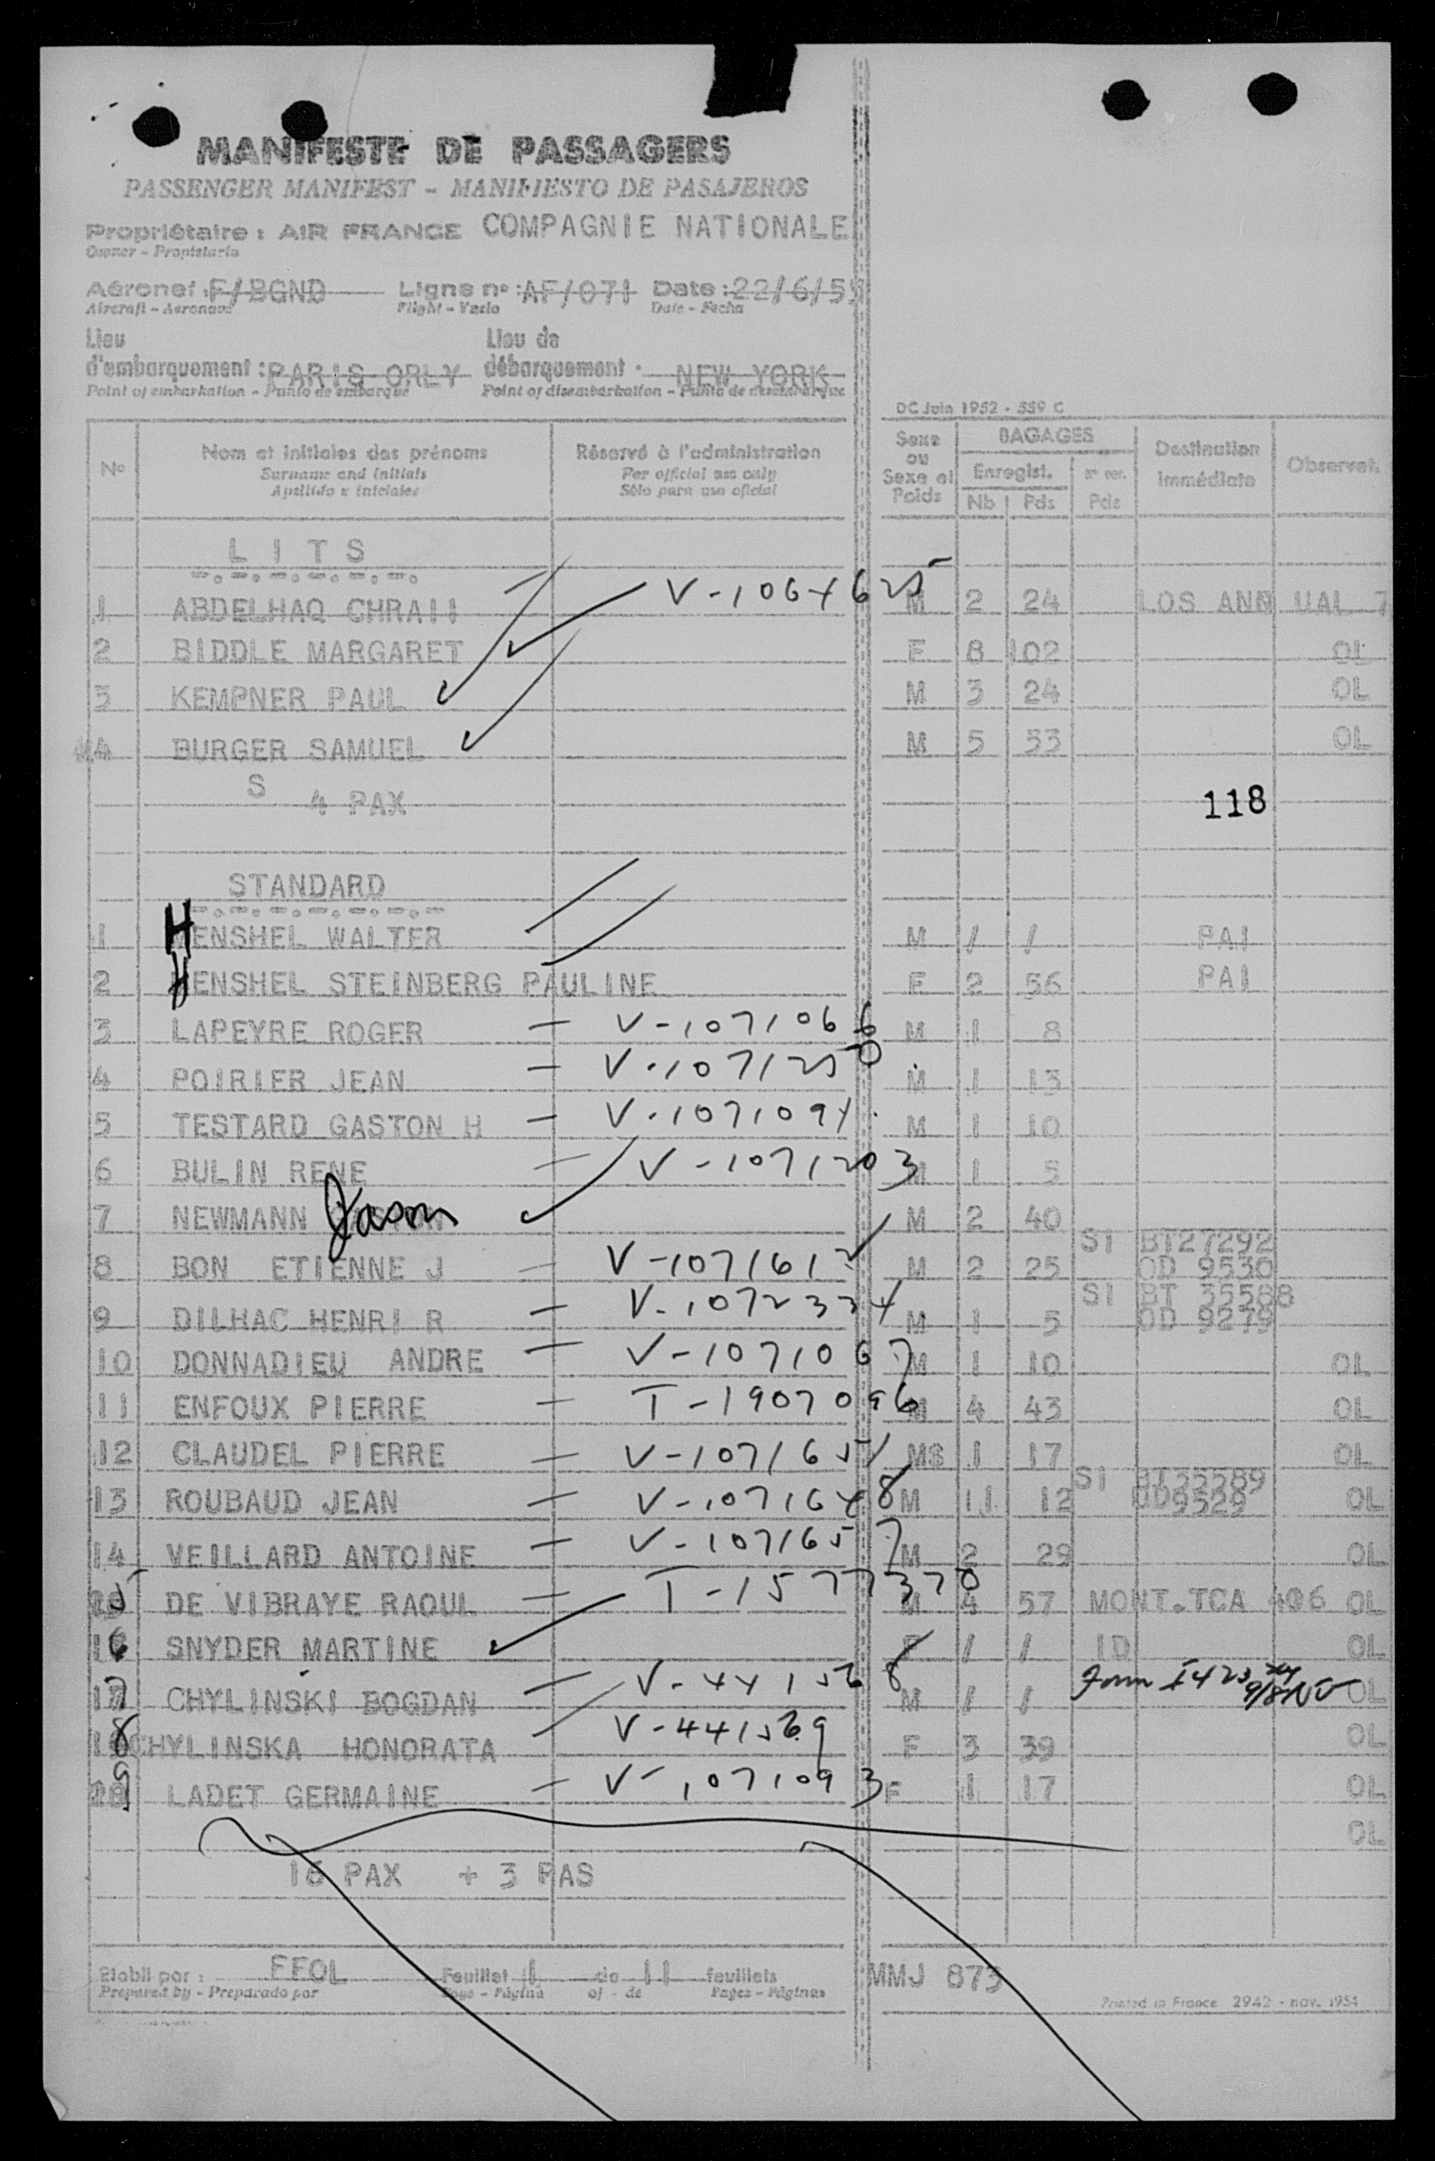 MANIFESTE DE PASSAGERS
PASSENGER MANIFEST - MANIFIESTO DE PASAJEROS
Propriétaire : AIR FRANCE COMPAGNIE NATIONALE
Owner - Propietario
Aéronef : F/BGND Ligne n° : AF/071 Date : 22/6/55
Aircraft - Aeronave Flight - Vuelo Date - Fecha
Lieu d'embarquement : PARIS ORLY Lieu de débarquement : NEW YORK
Point of embarkation - Punto de embarque Point of disembarkation - Punto de desembarque
DC Juin 1952 - 559 C
N° Nom et initiales des prénoms Réservé à l'administration Sexe ou Sexe et Poids BAGAGES Destination immédiate Observat.
Surname and initials Per official use only Enregist.
Apellido e iniciales Sólo para uso oficial Nb Pds Pds
L I T S
1 ABDELHAQ CHRAII V-1064625 M 2 24 LOS ANN UAL 7
2 BIDDLE MARGARET F 8 102 OL
3 KEMPNER PAUL M 3 24 OL
4 BURGER SAMUEL M 5 53 OL
S 4 PAX
118
STANDARD
1 HENSHEL WALTER M / / PAI
2 HENSHEL STEINBERG PAULINE F 2 56 PAI
3 LAPEYRE ROGER - V-1071066 M 1 8
4 POIRIER JEAN - V-1071250 M 1 13
5 TESTARD GASTON H - V-1071094 M 1 10
6 BULIN RENE - V-1071203 M 1 5
7 NEWMANN Jason M 2 40
8 BON ETIENNE J - V-1071612 M 2 25 SI BT27292 OD 9530
9 DILHAC HENRI R - V-1072334 M 1 5 SI BT 35588 OD 9279
10 DONNADIEU ANDRE - V-1071067 M 1 10 OL
11 ENFOUX PIERRE - T-1907096 M 4 43 OL
12 CLAUDEL PIERRE - V-1071651 M$ 1 17 OL
13 ROUBAUD JEAN - V-1071648 M 11 12 SI BT35589 OD9529 OL
14 VEILLARD ANTOINE - V-1071657 M 2 29 OL
15 DE VIBRAYE RAOUL - T-1577370 M 4 57 MONT.TCA 406 OL
16 SNYDER MARTINE F / / ID OL
17 CHYLINSKI BOGDAN - V-441568 M / / Form I 423 OL
18 CHYLINSKA HONORATA V-441569 F 3 39 OL
19 LADET GERMAINE - V-1071093 F 1 17 OL
OL
16 PAX + 3 PAS
Etabli par : FFOL Feuillet 1 de 11 feuillets MMJ 873
Prepared by - Preparado por Page - Página of - de Pages - Páginas
Printed in France 2942 - nov. 1954